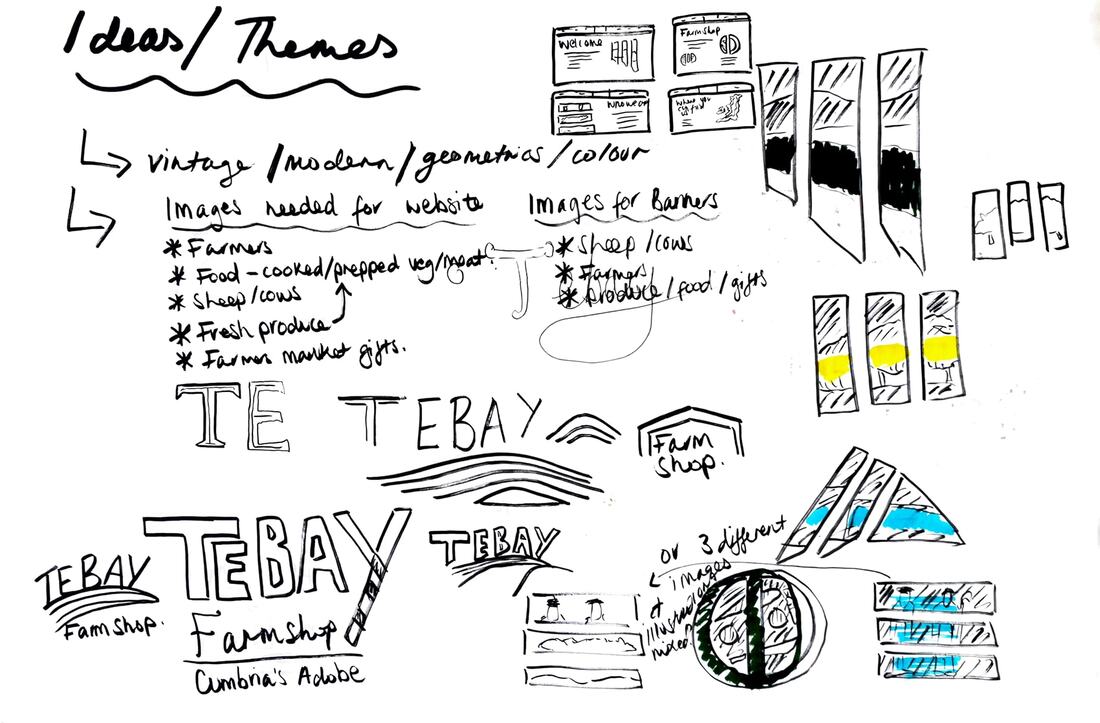 Ideas/Themes
vintage/modern/geometrics/colour
Images needed for website
* Farmers
* Food - cooked/prepped veg/meat.
* Sheep/cows
* Fresh produce
* Farmers market gifts.
Images for Banners
* Sheep/cows
* Farmers
* Produce/food/gifts
Welcome
Farmshop
Who we are
Where you
can find
us
T
TE
TEBAY
Farm
Shop.
TEBAY
Farmshop.
TEBAY
Farmshop
Cumbria's Adobe
TEBAY
or 3 different
images
mixed.